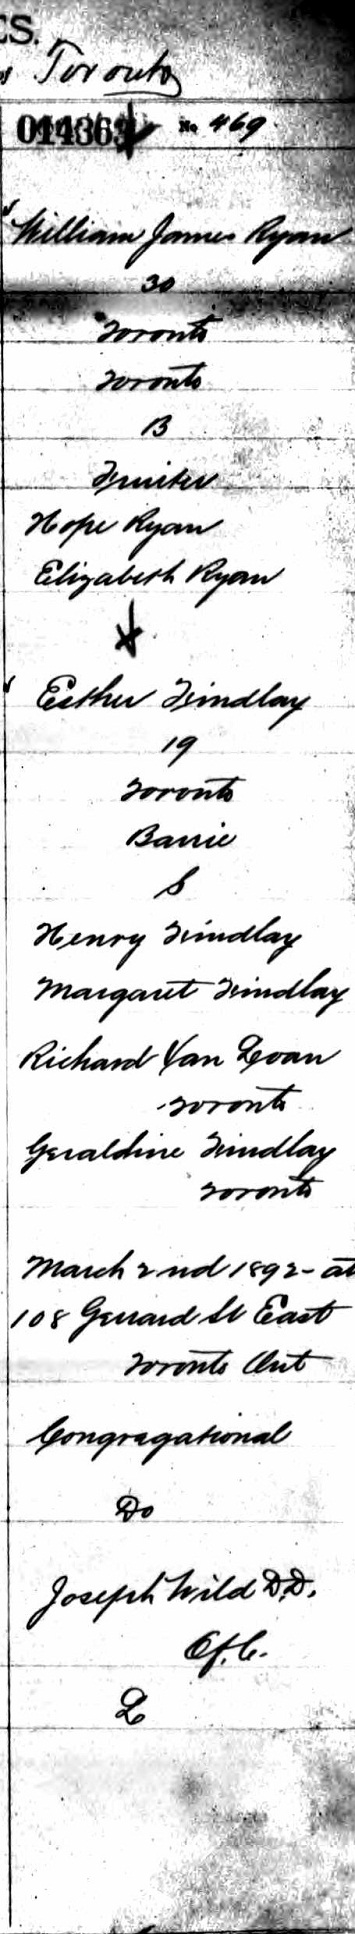 ES.
of Toronto
014363 No. 469
William James Ryan
30
Toronto
Toronto
B
Hope Ryan
Elizabeth Ryan
Esther Findlay
19
Toronto
Barrie
S
Henry Findlay
Margaret Findlay
Richard Van Loan
Toronto
Geraldine Findlay
Toronto
March 2nd 1892 - at
108 Gerrard St East
Toronto Ont
Congragational
Do
Joseph Wild D.D.
L